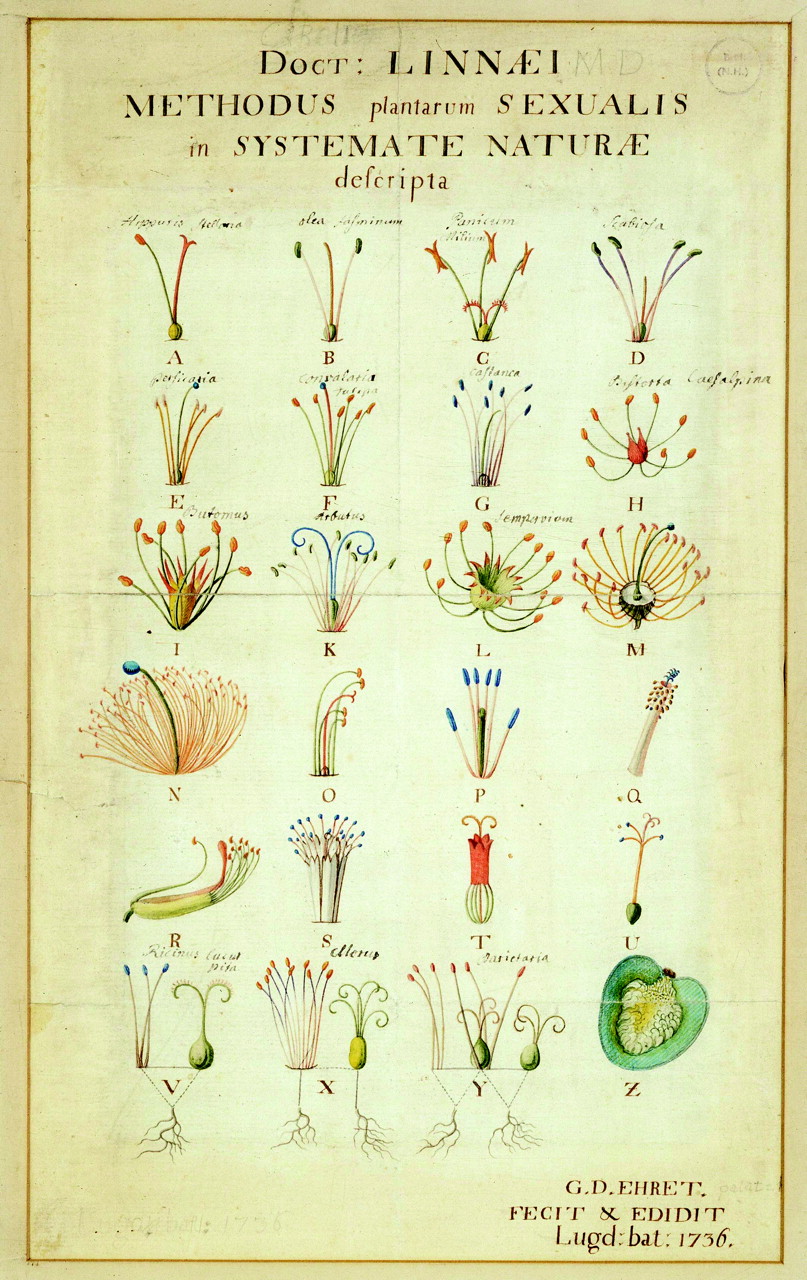 Doct: LINNÆI MD
METHODUS plantarum SEXUALIS
in SYSTEMATE NATURÆ
deſcripta
Olea Jaſminum
Panicum
Milium
Scabioſa
A B C D
Perſicaria
Convalaria
Caſtanea
Biſtorta Caeſalpina
E F G H
Butomus
Arbutus
Sempervivum
I K L M
N O P Q
R S T U
Ricinus
Parietaria
V X Y Z
G.D.EHRET.
FECIT & EDIDIT
Lugd: bat: 1736.